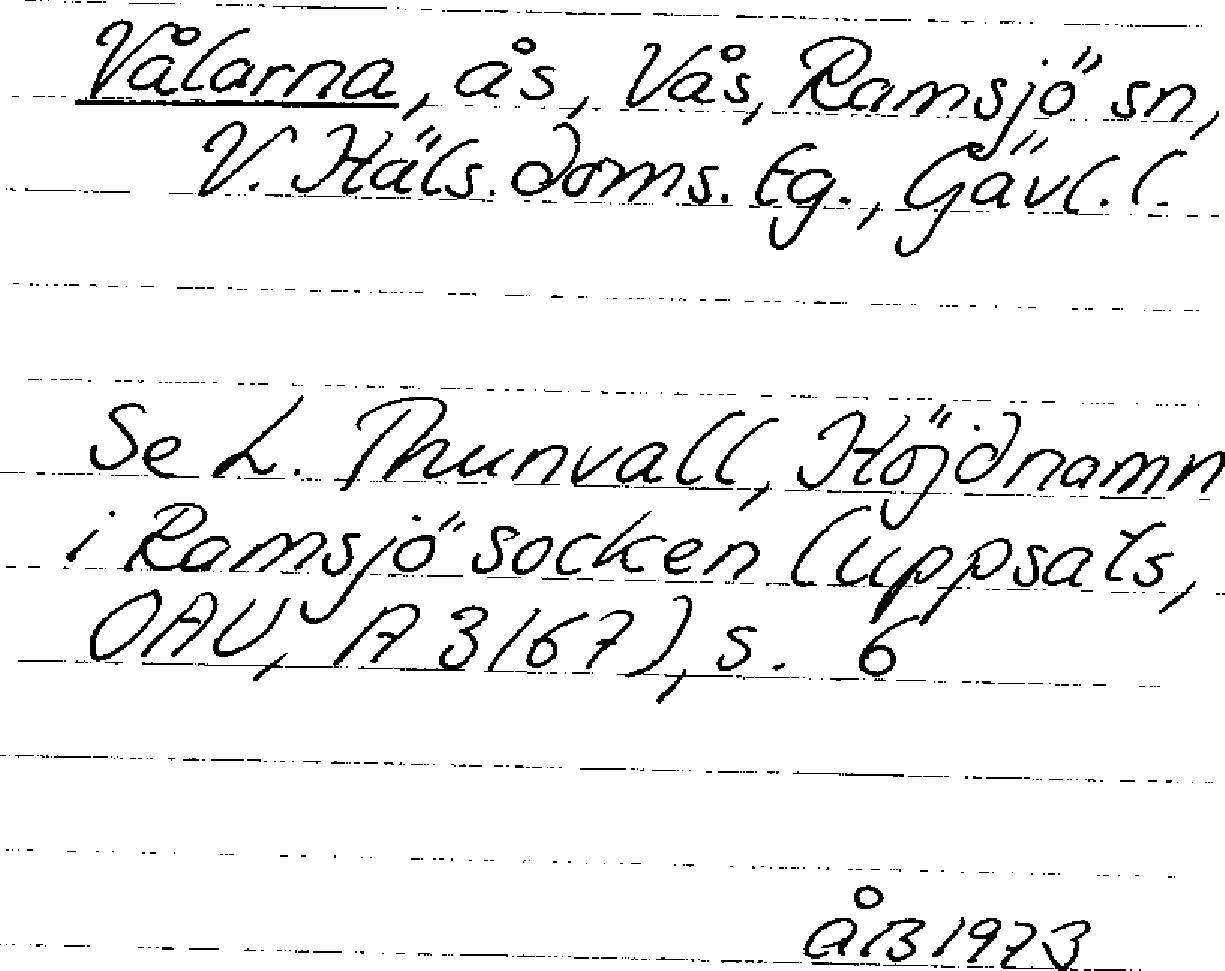 Vålarna, ås, Vås, Ramsjö sn,
V. Häls. doms. tg., Gävl. l.
Se L. Thunvall, Höjdnamn
i Ramsjö socken (uppsats,
OAU, A 3167), s. 6
ÅB 1973